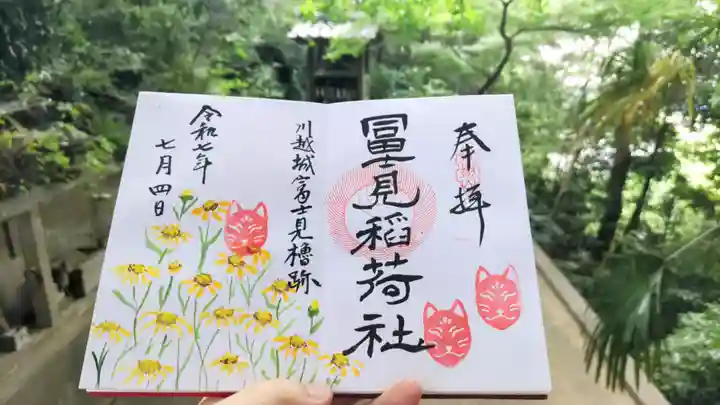 奉拝
冨士見稲荷社
川越城富士見櫓跡
令和七年
七月四日